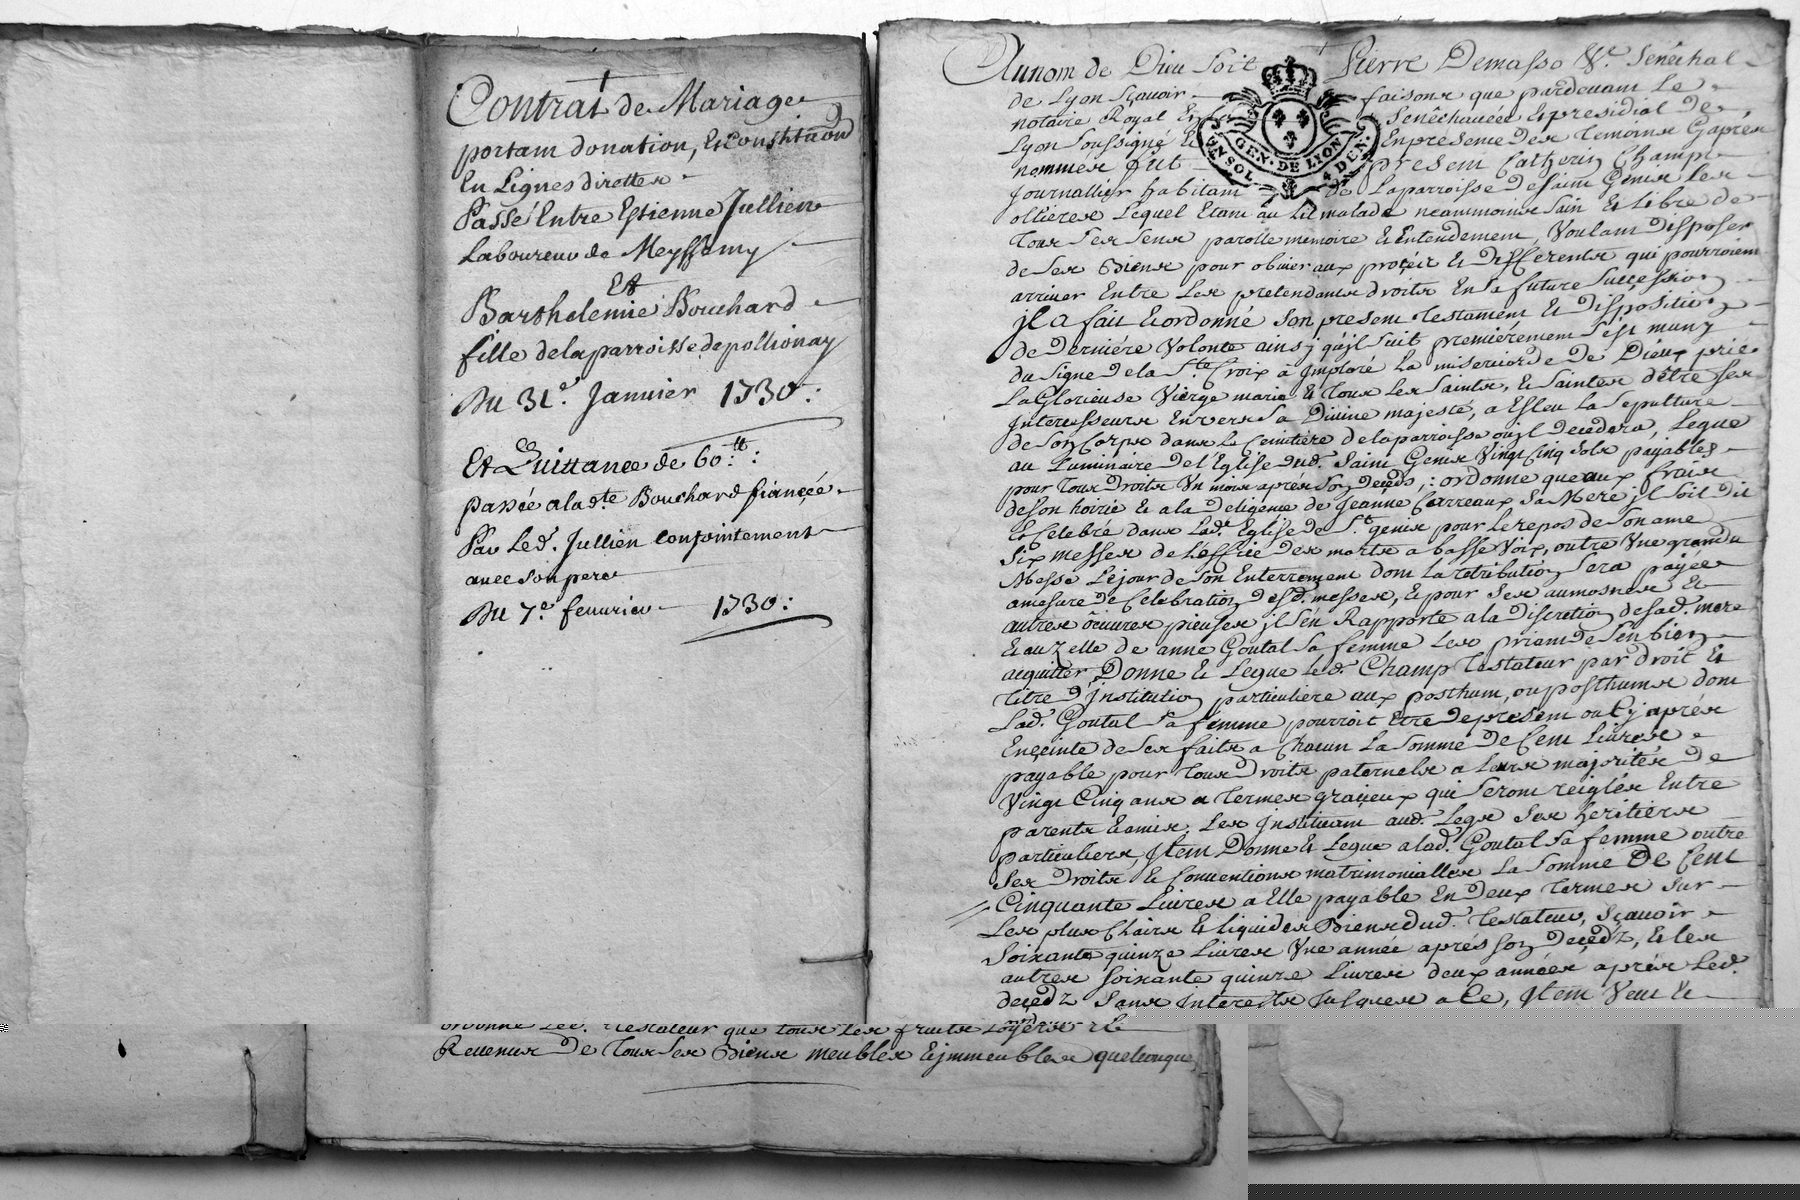 Contrat de Mariage
portant donation, & constitaõn
En Lignes direttes
Passé Entre Estienne Jullien
Laboureur de Meyssemy
Et
Barthelemie Bouchard
fille delaparroisse de pollionay
Du 31.e Janvier 1730:
Et Quittance de 60.tt:
passée alad.te Bouchard fiancée
Par Led. Jullien Conjointement
avec son pere
Du 7.e fevurier 1730:
Aunom de Dieu Soit Pierre Demasso Sr. Senéchal
de Lyon Sçavoir faisons que pardevant Le
notaire Royal En La Senéchaucée & presidial de
Lyon Soussigné & Enpresence des temoins Gaprés
nommés fut present Catherin Champ
Journallier habitant de Laparroisse de Saint Genis Les
ollieres Lequel Etant au Lit malade neantmoins Sain & Libre de
tous Ses Sens parolle memoire & Entendement, Voulant Disposer
de Ses Biens pour obvier aux procéz & Differents qui pourroient
arriver Entre Les pretendants droits En Sa future Succession
jl a fait & ordonné Son present testament & disposition
de Derniére Volonte ainsy qu'jl Suit premiérement S'est muny
du Signe dela Ste Croix a Imploré La misericorde de Dieu, prié
La Glorieuse Vierge marie & tous Les Saints, & Saintes détre Ses
Intercesseurs Envers Sa Divine majesté, a Esleu La Sepulture
de Son Corps dans Le Cemitiére delaparroisse oujl decedera, Legue
au Luminaire de l'Eglise dud. Saint Genis Vingt Cinq Sols payables
pour tous Droits Un mois aprés Son decéds,: ordonne que aux frais
deson hoirie & ala deligence de Jeanne Carreaux Sa Mere jl Soit dit
& Celebré dans Lade Eglise de St. genis pour Le repos de Son ame
Six messes de Loffice des morts a basse Voix, outre Une grande
Messe Lejour de Son Enterrement dont La retribution Sera payée
amesure de Celebration desd. messes, & pour Ses aumosnes &
autres oeuvres pieuses jl S'en Rapporte ala discretion desad. mere
& auz elle de anne Goutal Sa femme Les priant de S'en bien
acquitter, Donne & Legue Led. Champ testateur par droit &
titre d'Institution particuliere aux posthum, ou posthums dont
Lad. Goutal Sa femme pourroit Etre depresent ou Cy aprés
Enceinte de Ses faits a Chacun La Somme de Cent Livres
payable pour tous Droits paternels a Leurs majorités de
Vingt Cinq ans a termes gracieux qui Seront reiglés Entre
parents & amis. Les Instituant aud. Legs Ses heritiers
particuliers, Item Donne & Legue alad. Goutal Sa femme outre
Ses Droits & Conventions matrimonialles La Somme de Cent
Cinquante Livres a Elle payable En deux termes Sur
Les plus Clairs & liquides Biens dud. testateur, Sçavoir
Soixante quinze Livres Une année aprés Son decedz, & les
autres Soixante quinze Livres deux années aprés Led.
decedz Sans Interests Jusques a Ce, Item Veut &
ordonne Led. testateur que tous Les fruits Loyers &
Revenus de tous Ses Biens meubles & immeubles quelconques
GEN. DE LYON